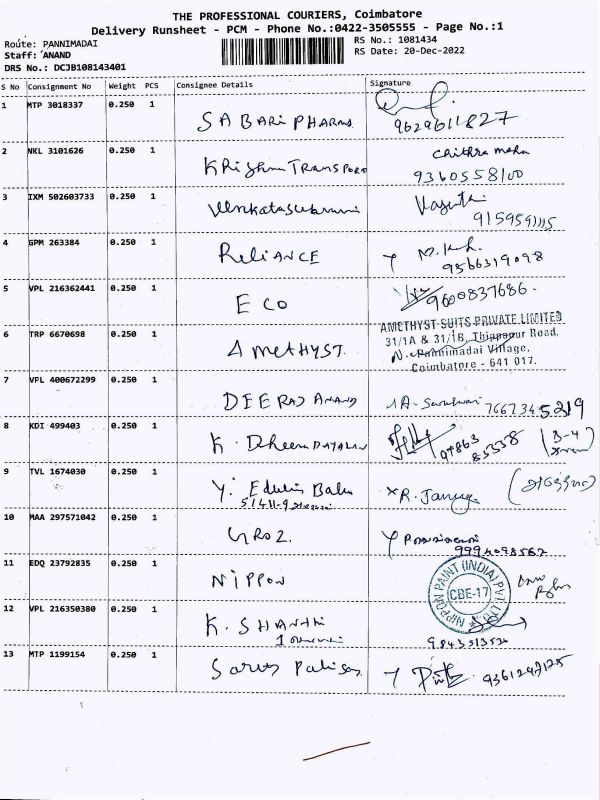 THE PROFESSIONAL COURIERS, Coimbatore
Delivery Runsheet - PCM - Phone No.:0422-3505555 - Page No.:1
Route: PANNIMADAI
RS No.: 1081434
Staff: ANAND
RS Date: 20-Dec-2022
DRS No.: DCJB108143401
S No Consignment No Weight PCS Consignee Details Signature
1 MTP 3018337 0.250 1 SABARI PHARMA
9629611827
2 NKL 3101626 0.250 1 KRISHNA TRANSPORT Chithra
9360558100
3 IXM 502603733 0.250 1
4 GPM 263384 0.250 1 RELIANCE
9566319098
5 VPL 216362441 0.250 1 ECO 9600837686.
6 TRP 6670698 0.250 1 AMETHYST.
AMETHYST SUITS PRIVATE LIMITED
31/1A & 31/1B, Thippapur Road,
N. Pannimadai Village,
Coimbatore - 641 017.
7 VPL 400672299 0.250 1 DEERAJ ANAND 7667345219
8 KDI 499403 0.250 1 K. DheenDAYALAN
9 TVL 1674030 0.250 1 Y. Edwin Babu
10 MAA 297571042 0.250 1
11 EDQ 23792835 0.250 1 NIPPON
NIPPON PAINT (INDIA) PVT LTD
CBE-17
12 VPL 216350380 0.250 1 K. SHANTHI
13 MTP 1199154 0.250 1